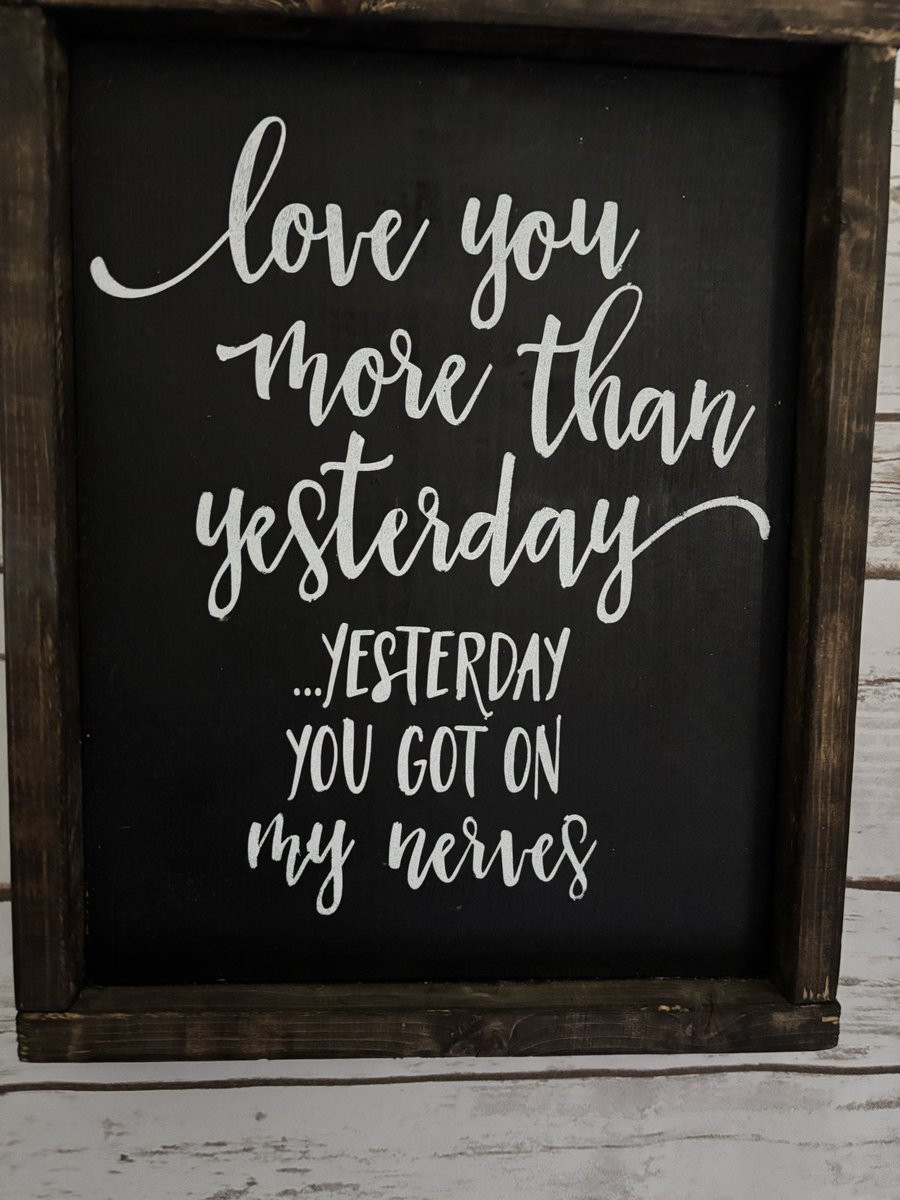 love you
more than
yesterday
...YESTERDAY
YOU GOT ON
my nerves